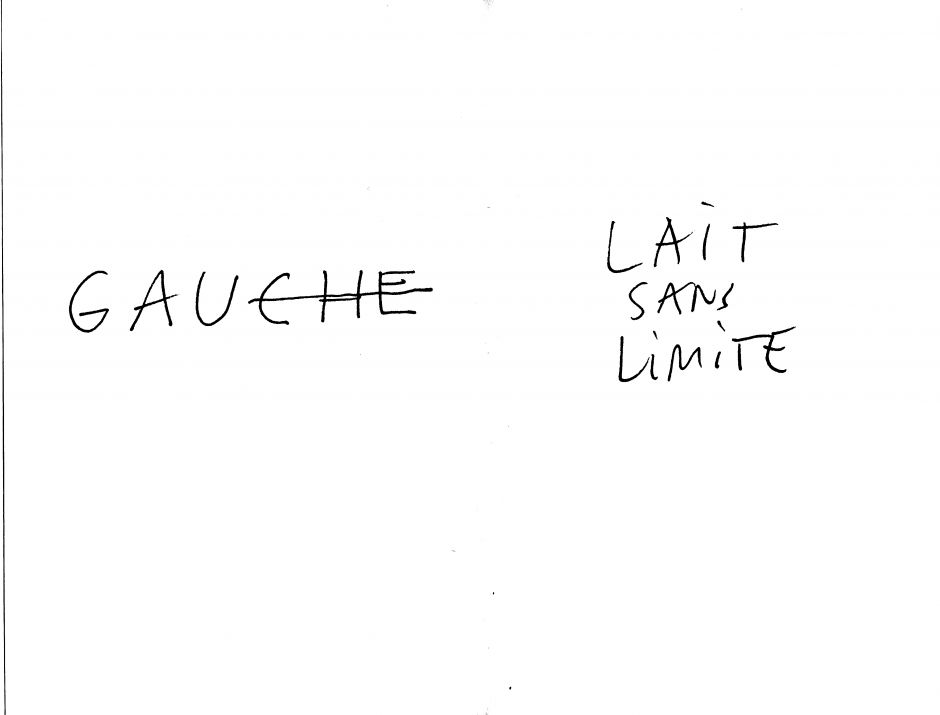 GAUCHE
LAIT
SANS
LIMITE